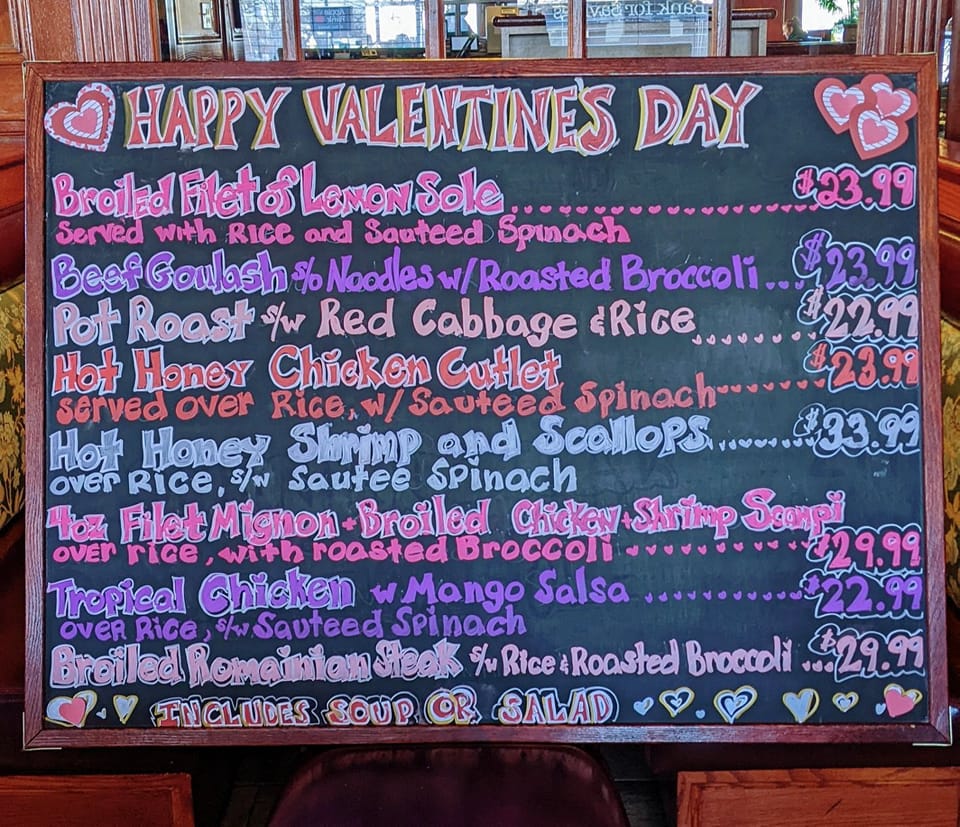 Bank for Savings
HAPPY VALENTINE'S DAY
Broiled Filet of Lemon Sole $23.99
Served with Rice and Sauteed Spinach
Beef Goulash s/o Noodles w/ Roasted Broccoli $23.99
Pot Roast s/w Red Cabbage & Rice $22.99
Hot Honey Chicken Cutlet $23.99
served over Rice, w/ Sauteed Spinach
Hot Honey Shrimp and Scallops $33.99
over Rice, s/w Sautee Spinach
4oz Filet Mignon + Broiled Chicken + Shrimp Scampi
over rice, with roasted Broccoli $29.99
Tropical Chicken w Mango Salsa $22.99
over Rice, s/w Sauteed Spinach
Broiled Romainian Steak s/w Rice & Roasted Broccoli $29.99
INCLUDES SOUP OR SALAD